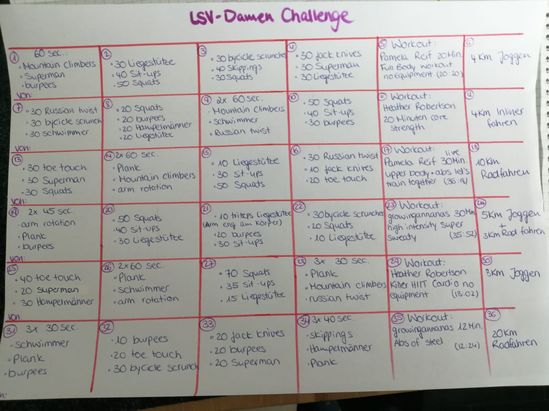 LSV-Damen Challenge
1
60 sec.
• Mountain climbers
• Superman
• burpees
von:
2
• 30 Liegestütze
• 40 Sit-ups
• 50 Squats
3
• 30 bycicle scrunches
• 40 Skippings
• 30 Squats
4
• 30 Jack knives
• 30 Superman
• 30 Liegestütze
5 Workout:
Pamela Reif 20Min
Full Body workout
no equipment (20:20)
6
4km Joggen
7
• 30 Russian twist
• 30 bycicle scrunch
• 30 schwimmer
8
• 20 Squats
• 20 burpees
• 20 Hampelmänner
• 20 Liegestütze
9 2x 60 sec.
• Mountain climbers
• schwimmer
• Russian twist
10
• 50 Squats
• 40 Sit-ups
• 30 burpees
Workout:
Heather Robertson
20 Minuten core
strength
4km Inliner
fahren
13
• 30 toe touch
• 30 Superman
• 30 Squats
14 2x 60 sec.
• Plank
• Mountain climbers
• arm rotation
• 10 Liegestütze
• 30 Sit-ups
• 50 Squats
• 30 Russian twist
• 10 jack knives
• 20 toe touch
17 Workout: live
Pamela Reif 30Min
upper body+abs let's
train together
18
10km
Radfahren
19 2x 45 sec.
• arm rotation
• Plank
• burpees
20
• 50 Squats
• 40 Sit-ups
• 30 Liegestütze
21
• 10 trizeps Liegestütze
(Arm eng am Körper)
• 20 burpees
• 30 sit-ups
22
• 30 bycicle scrunches
• 20 Squats
• 10 Liegestütze
23 Workout:
growingannanas 30Min
high intensity Super
Sweaty (35:52)
24
5km Joggen
+
3km Rad fahren
25
• 40 toe touch
• 20 Superman
• 30 Hampelmänner
von
26 2x 60 sec.
• Plank
• Schwimmer
• arm rotation
27
• 70 Squats
• 35 Sit-ups
• 15 Liegestütze
3x 30 sec.
• Plank
• Mountain climbers
• russian twist
Workout:
Heather Robertson
Killer HIIT Cardio no
equipment (15:02)
30
3km Joggen
31 3x 30 sec.
• Schwimmer
• Plank
• burpees
32
• 10 burpees
• 20 toe touch
• 30 bycicle scrunch
33
• 20 jack knives
• 20 burpees
• 20 Superman
34 3x 40 sec.
• skippings
• Hampelmänner
• Plank
35 Workout:
growingannanas 12Min.
Abs of steel
(12:24)
36
20km
Radfahren